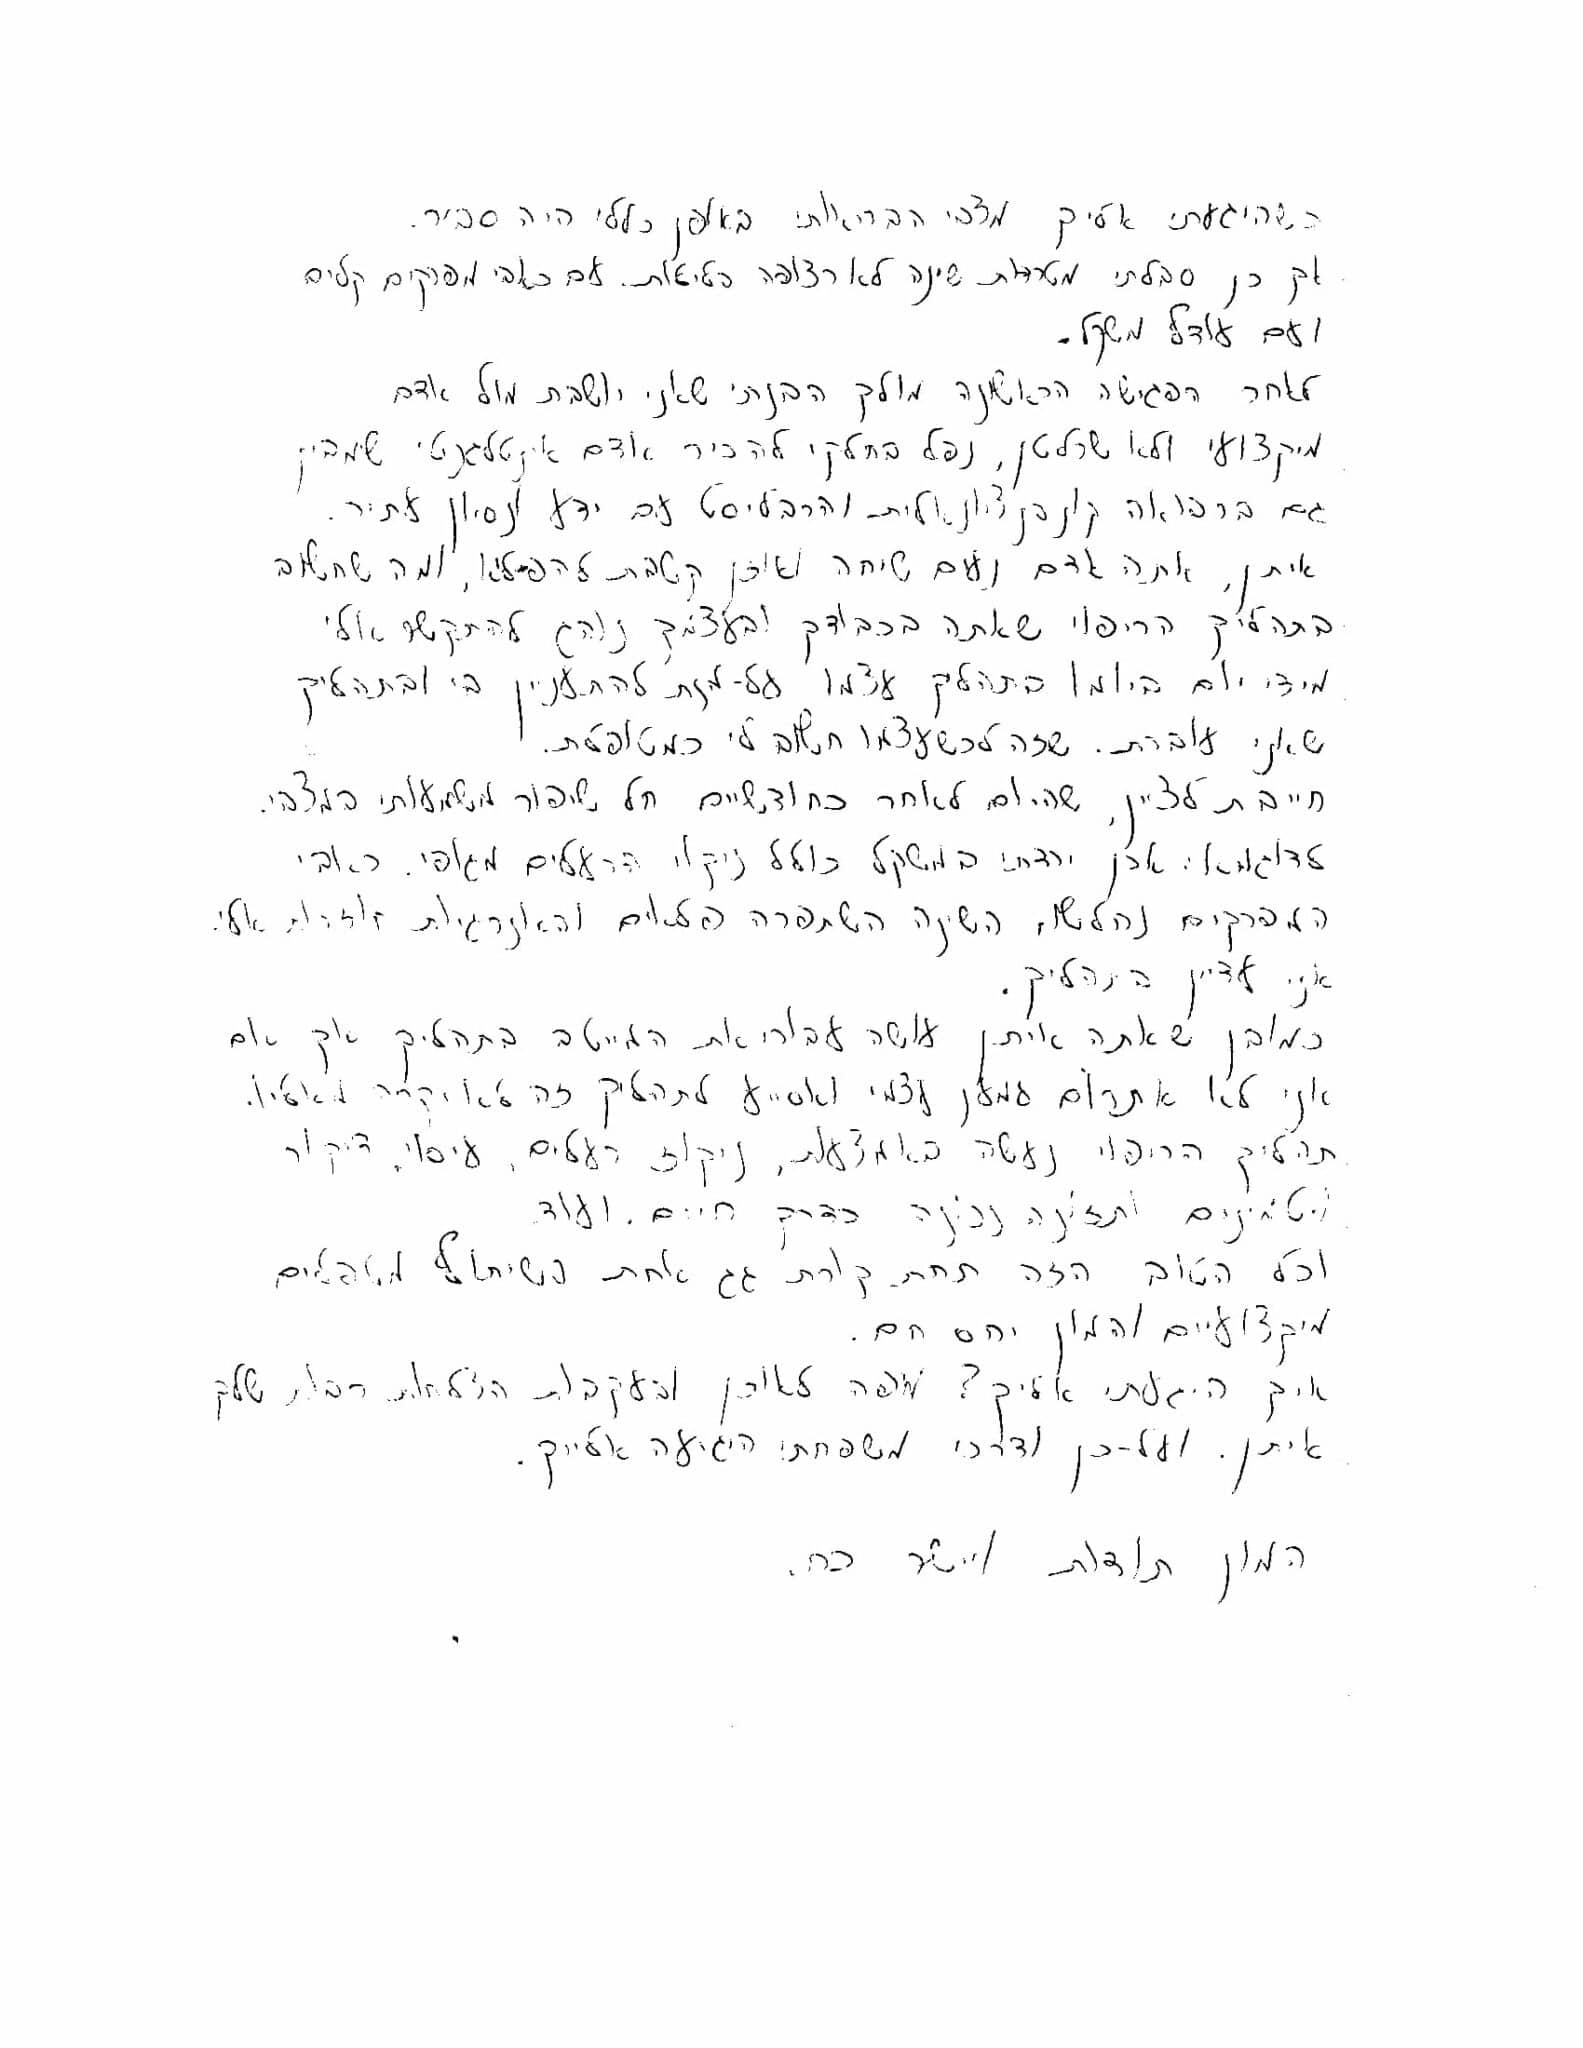 כשהיגעתי אליך מצבי הבריאותי באופן כללי היה סביר.
אך כן סבלתי מטרדות שינה לא רצופה בלילות. עם כאבי מפרקים קלים
ועם עודף משקל.
לאחר הפגישה הראשונה מולך הבנתי שאני יושבת מול אדם
מיקצועי ולא שרלטן, נפל בחלקי להכיר אדם אינטלגנטי שמבין
גם ברפואה קונבנציונאלית והרבליסט עם ידע ונסיון עתיר.
איתן, אתה אדם נעם שיחה ואוזן קשבת להפליא, ומה שחשוב
בתהליך הריפוי שאתה בכבודך ובעצמך נוהג להתקשר אלי
מידי יום ביומו בתהליך עצמו על-מנת להתעניין בי ובתהליך
שאני עוברת. שזה לכשעצמו חשוב לי כמטופלת.
חייבת לציין, שהיום לאחר כחודשיים חל שיפור משמעותי במצבי.
לדוגמא: אכן ירדתי במשקל כולל ניקוי הרעלים מגופי. כאבי
המפרקים נחלשו, השינה השתפרה פלאים והאנרגיות חוזרות אלי.
אני עדיין בתהליך.
כמובן שאתה איתן עושה עבורי את המייטב בתהליך אך אם
אני לא אתרום למען עצמי ואסייע לתהליך זה לא יקרה מאליו.
תהליך הריפוי נעשה באמצעות, ניקוז רעלים, עיסוי, דיקור
ויטמינים ותזונה נכונה כדרך חיים. ועוד
וכל הטוב הזה תחת קורת גג אחת בשיתוף מטפלים
מיקצועיים והמון יחס חם.
איך היגעתי אליך? מפה לאוזן ובעקבות הצלחות רבות שלך
איתן. ועל-כן ודרכי משפחתי היגיעה אלייך.
המון תודות ויישר כח.